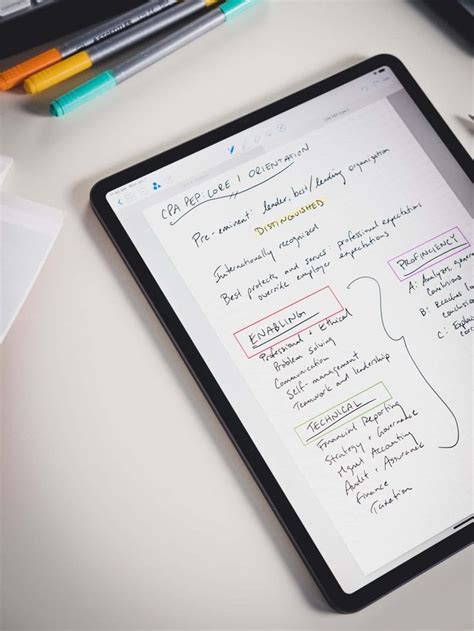 CPA PEP: CORE 1 ORIENTATION
Pre-eminent: leader, best/leading organization
DISTINGUISHED
Internationally recognized
Best protects and serves: professional expectations
override employer expectations
ENABLING
Professional + Ethical
Problem solving
Communication
Self-management
Teamwork and leadership
TECHNICAL
Financial Reporting
Strategy + Governance
Mgmt Accounting
Audit + Assurance
Finance
Taxation
PROFICIENCY
A: Analyzes
B:
C: